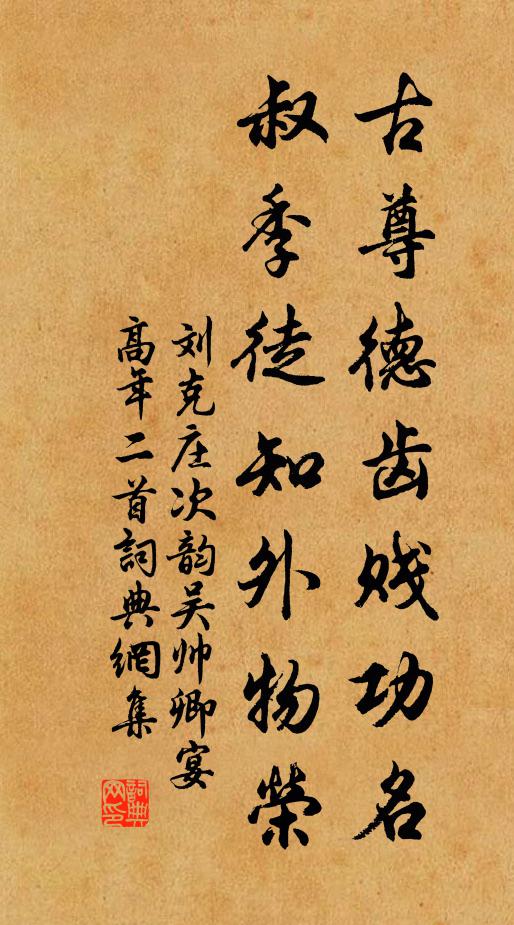 古尊德齿贱功名
叔季徒知外物榮
刘克庄次韵吴帅卿宴
高年二首詞典網集
詞典
网印